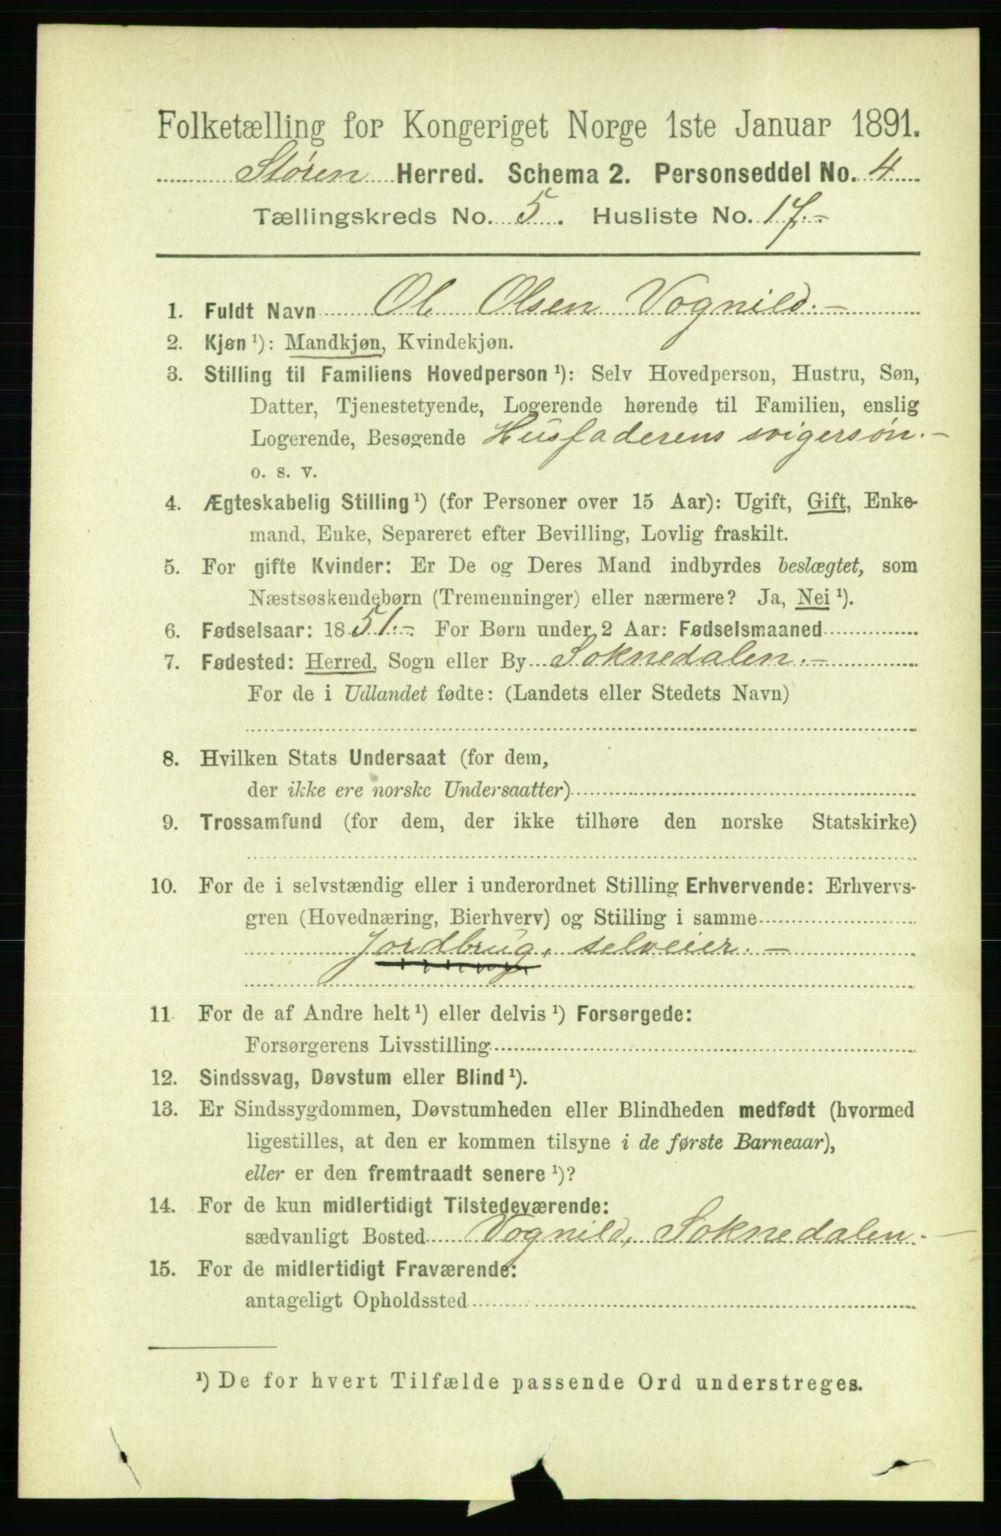 Folketælling for Kongeriget Norge 1ste Januar 1891.
Støren Herred. Schema 2. Personseddel No. 4
Tællingskreds No. 5. Husliste No. 17.-
1. Fuldt Navn Ol Olsen Vognild.-
2. Kjøn ¹): Mandkjøn, Kvindekjøn.
3. Stilling til Familiens Hovedperson ¹): Selv Hovedperson, Hustru, Søn,
Datter, Tjenestetyende, Logerende hørende til Familien, enslig
Logerende, Besøgende Husfaderens svigersøn.-
o. s. v.
4. Ægteskabelig Stilling ¹) (for Personer over 15 Aar): Ugift, Gift, Enke-
mand, Enke, Separeret efter Bevilling, Lovlig fraskilt.
5. For gifte Kvinder: Er De og Deres Mand indbyrdes beslægtet, som
Næstsøskendebørn (Tremenninger) eller nærmere? Ja, Nei ¹).
6. Fødselsaar: 1851.- For Børn under 2 Aar: Fødselsmaaned
7. Fødested: Herred, Sogn eller By Soknedalen.-
For de i Udlandet fødte: (Landets eller Stedets Navn)
8. Hvilken Stats Undersaat (for dem,
der ikke ere norske Undersaatter)
9. Trossamfund (for dem, der ikke tilhøre den norske Statskirke)
10. For de i selvstændig eller i underordnet Stilling Erhvervende: Erhvervs-
gren (Hovednæring, Bierhverv) og Stilling i samme
Jordbrug, selveier.-
11 For de af Andre helt ¹) eller delvis ¹) Forsørgede:
Forsørgerens Livsstilling
12. Sindssvag, Døvstum eller Blind ¹).
13. Er Sindssygdommen, Døvstumheden eller Blindheden medfødt (hvormed
ligestilles, at den er kommen tilsyne i de første Barneaar),
eller er den fremtraadt senere ¹)?
14. For de kun midlertidigt Tilstedeværende:
sædvanligt Bosted Vognild, Soknedalen.-
15. For de midlertidigt Fraværende:
antageligt Opholdssted
¹) De for hvert Tilfælde passende Ord understreges.